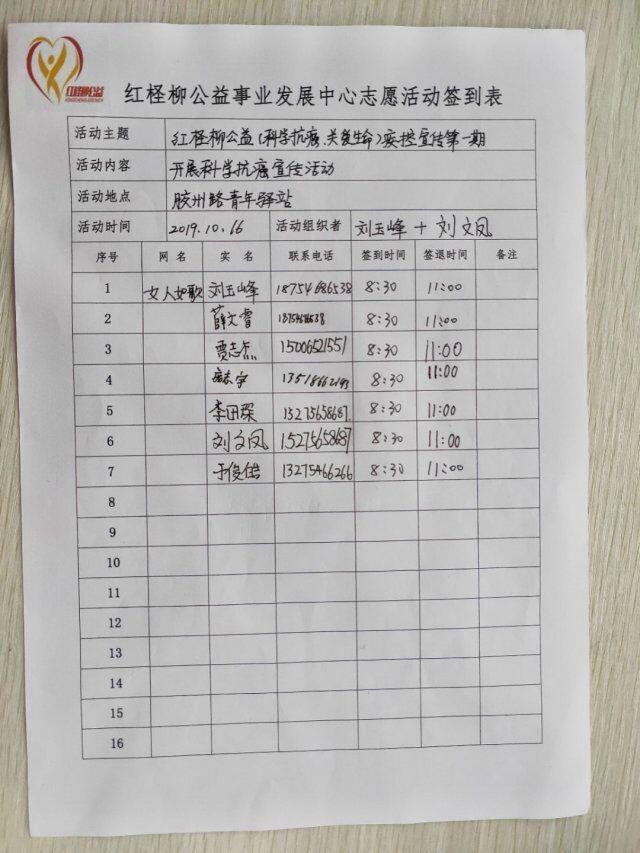 红柽柳公益
红柽柳公益事业发展中心志愿活动签到表
活动主题 红柽柳公益(科学抗癌、关爱生命)疾控宣传第一期
活动内容 开展科学抗癌宣传活动
活动地点 胶州路青年驿站
活动时间 2019.10.66 活动组织者 刘玉峰 + 刘文凤
序号 网名 实名 联系电话 签到时间 签退时间 备注
1 女人如歌 刘玉峰 18754686538 8:30 11:00
2 薛文睿 8:30 11:00
3 贾志杰 15006521551 8:30 11:00
4 8:30 11:00
5 李田琛 15275658687 8:30 11:00
6 刘文凤 15275658687 8:30 11:00
7 于俊皓 13275466266 8:30 11:00
8
9
10
11
12
13
14
15
16